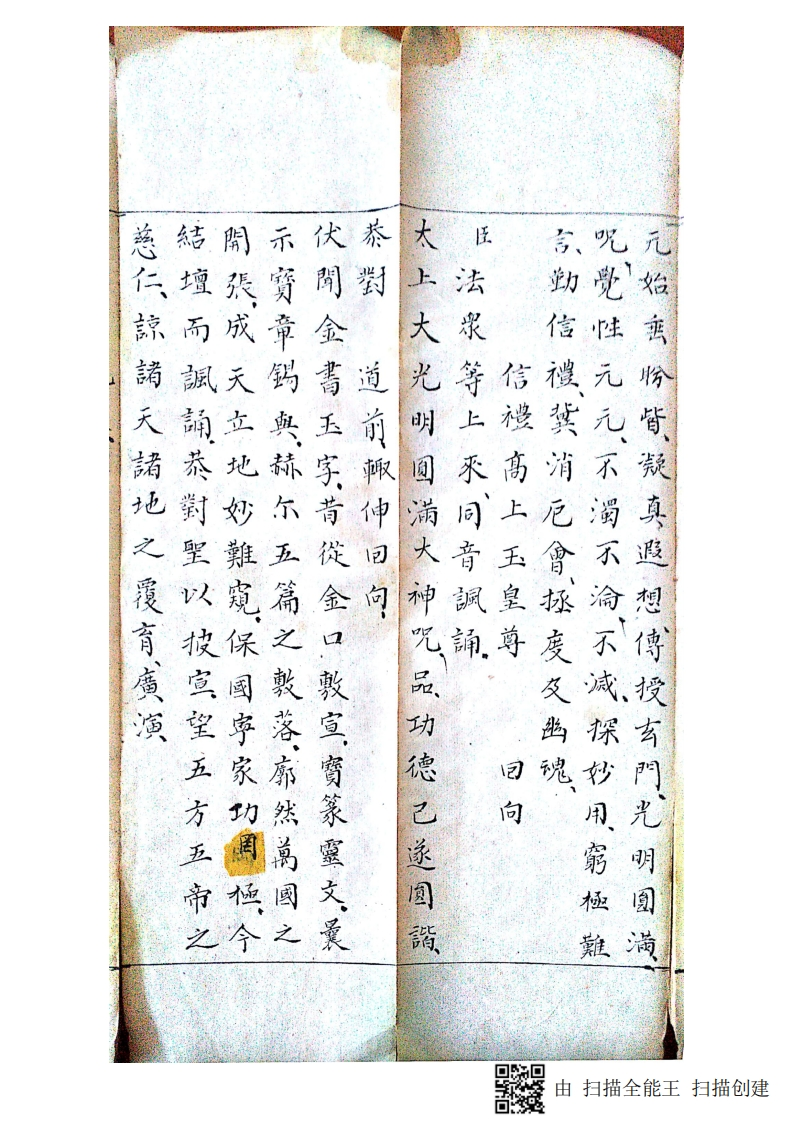 元始垂盼眥、凝真遐想、傳授玄門、光明圓滿、
呪、覺性元元、不濁不淪、不減、探妙用、窮極難
言、勤信禮、冀消厄會、拯度及幽魂、
信禮高上玉皇尊 回向
臣法眾等上來、同音諷誦。
太上大光明圓滿大神呪、品、功德已遂圓諧、
恭對 道前、輙伸回向、
伏聞金書玉字、昔從金口敷宣、寶篆靈文、曩
示寶章錫與、赫尔五篇之敷落、廓然萬國之
開張、成天立地妙難窺、保國寧家功罔極、今
結壇而諷誦、恭對聖以披宣、望五方五帝之
慈仁、諒諸天諸地之覆育、廣演、
由 扫描全能王 扫描创建